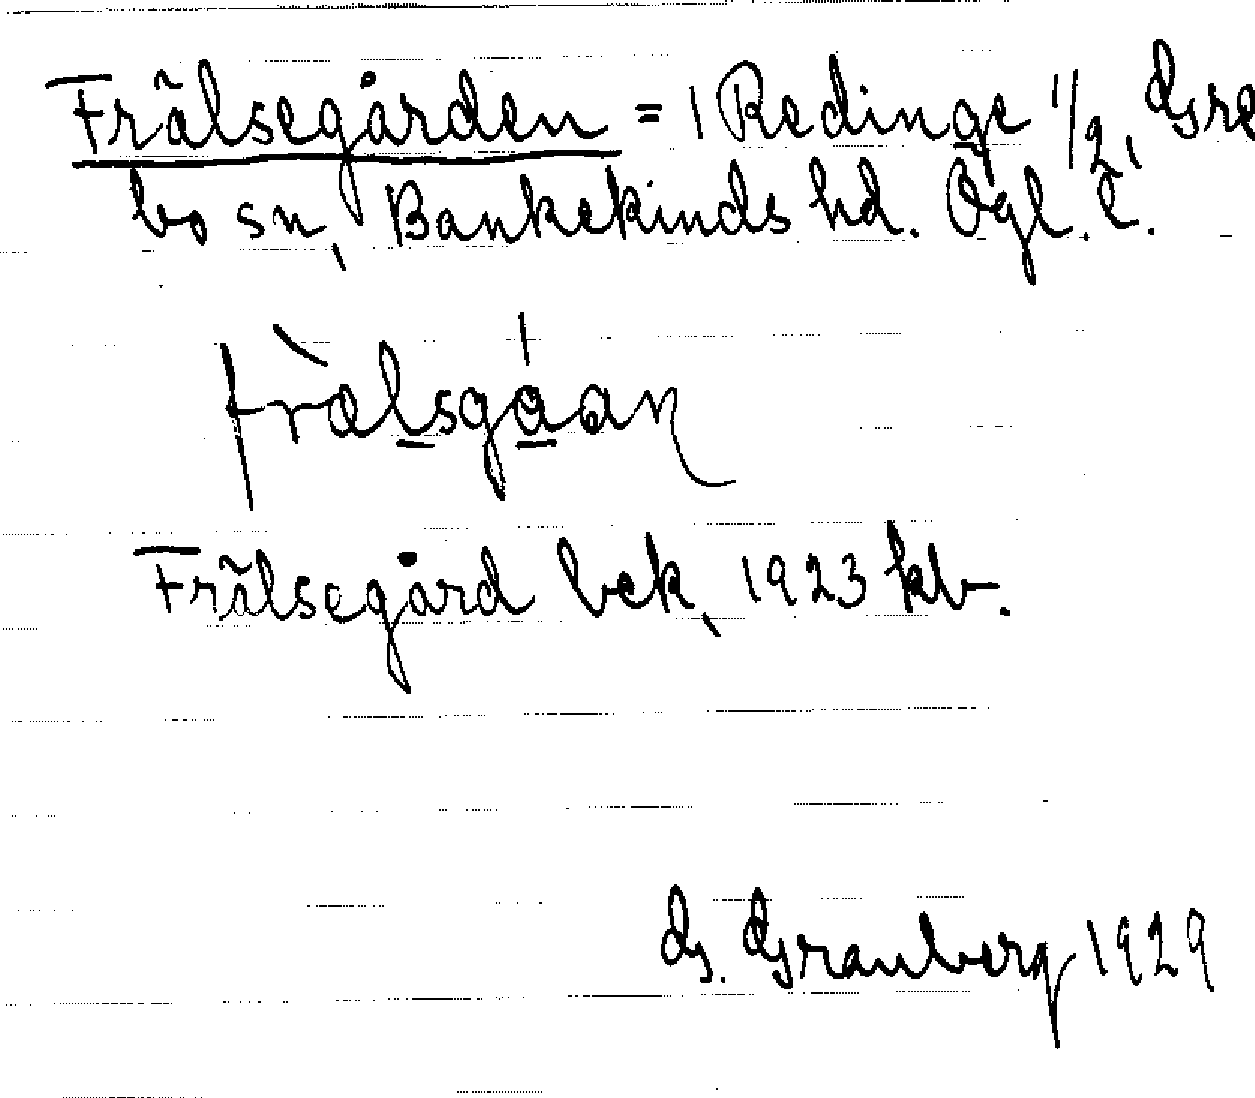 Frälsegården = 1 Redinge 1/2, Gre
bo sn, Bankekinds hd. Ögl. L.
Frälsegård bek, 1923 kb.
G. Granberg 1929